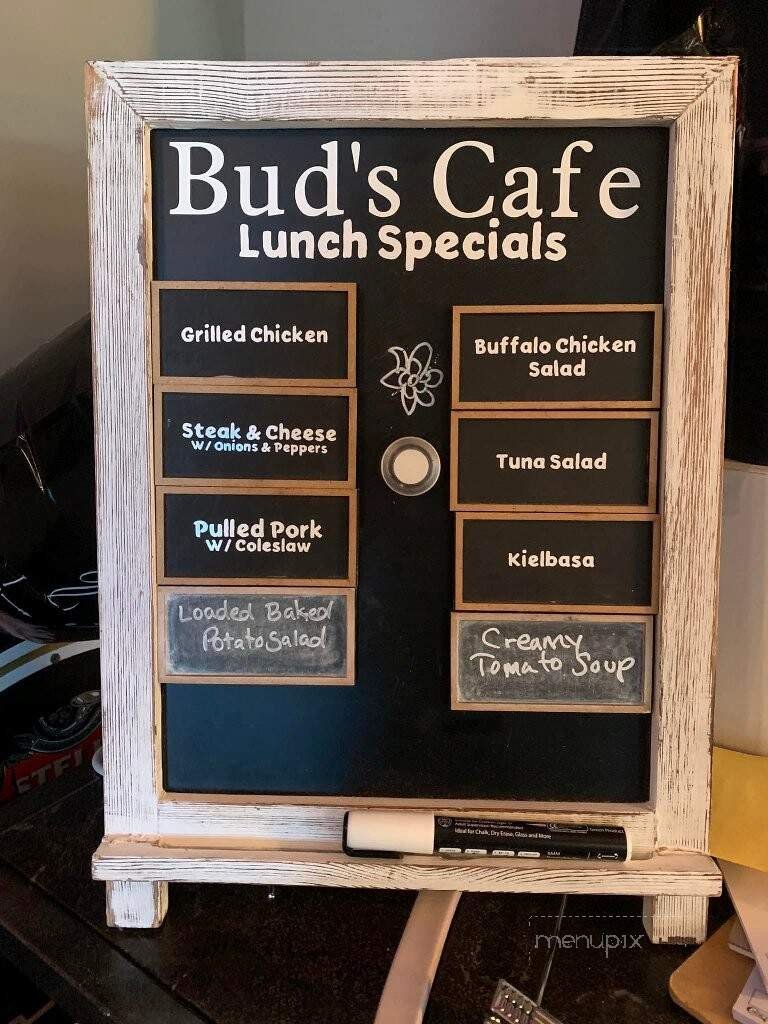 Bud's Cafe
Lunch Specials
Grilled Chicken
Steak & Cheese
W/ Onions & Peppers
Pulled Pork
W/ Coleslaw
Loaded Baked
Potato Salad
Buffalo Chicken
Salad
Tuna Salad
Kielbasa
Creamy
Tomato Soup
Ideal for Chalk, Dry Erase, Glass and More
menupix